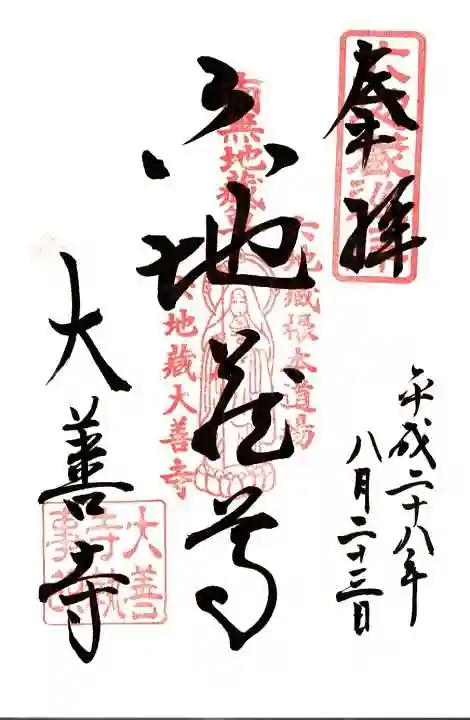 奉拝
平成二十八年
八月二十三日
六地蔵尊
大善寺
南無地蔵
六地蔵根本道場
六地蔵大善寺
大善